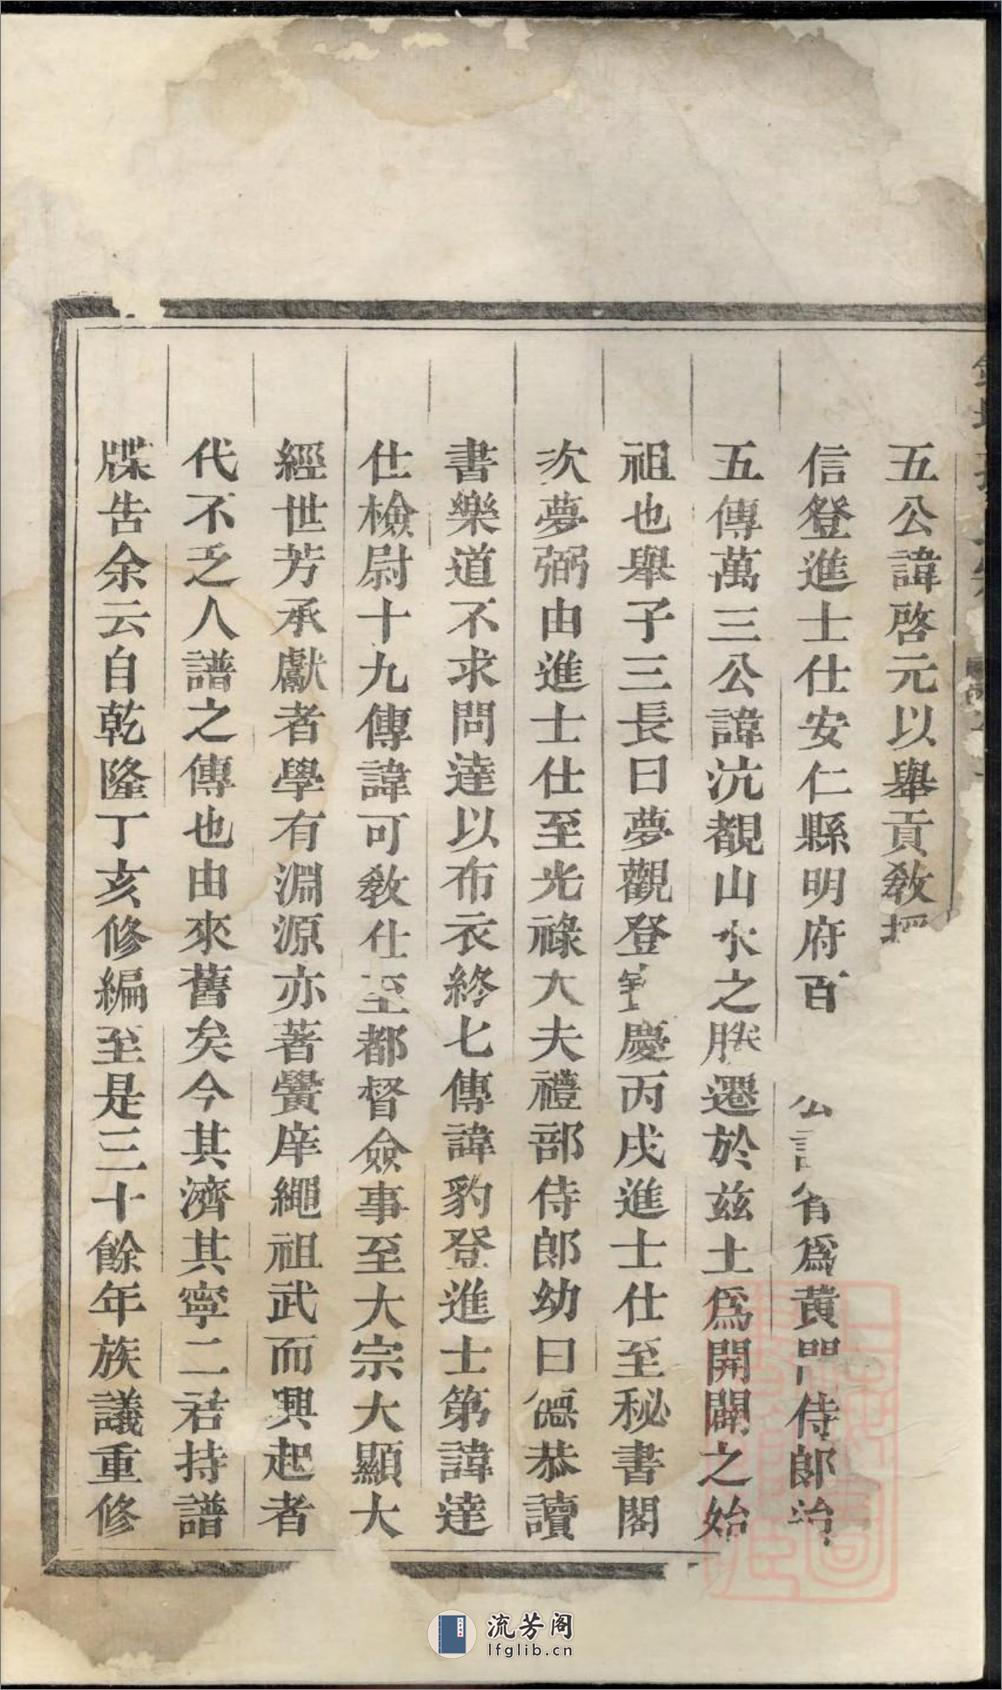 五公諱啓元以舉貢敎授
信登進士仕安仁縣明府百公諱省爲黄門侍郎治
五傳萬三公諱沆覩山水之勝遷於茲土爲開闢之始
祖也舉子三長曰夢觀登寶慶丙戌進士仕至秘書閣
次夢弼由進士仕至光祿大夫禮部侍郎幼曰德恭讀
書樂道不求問達以布衣終七傳諱豹登進士第諱達
仕檢尉十九傳諱可敎仕至都督僉事至大宗大顯大
經世芳承獻者學有淵源亦著黌庠繩祖武而興起者
代不乏人譜之傳也由來舊矣今其濟其寧二君持譜
牒告余云自乾隆丁亥修編至是三十餘年族議重修
流芳阁
lfglib.cn